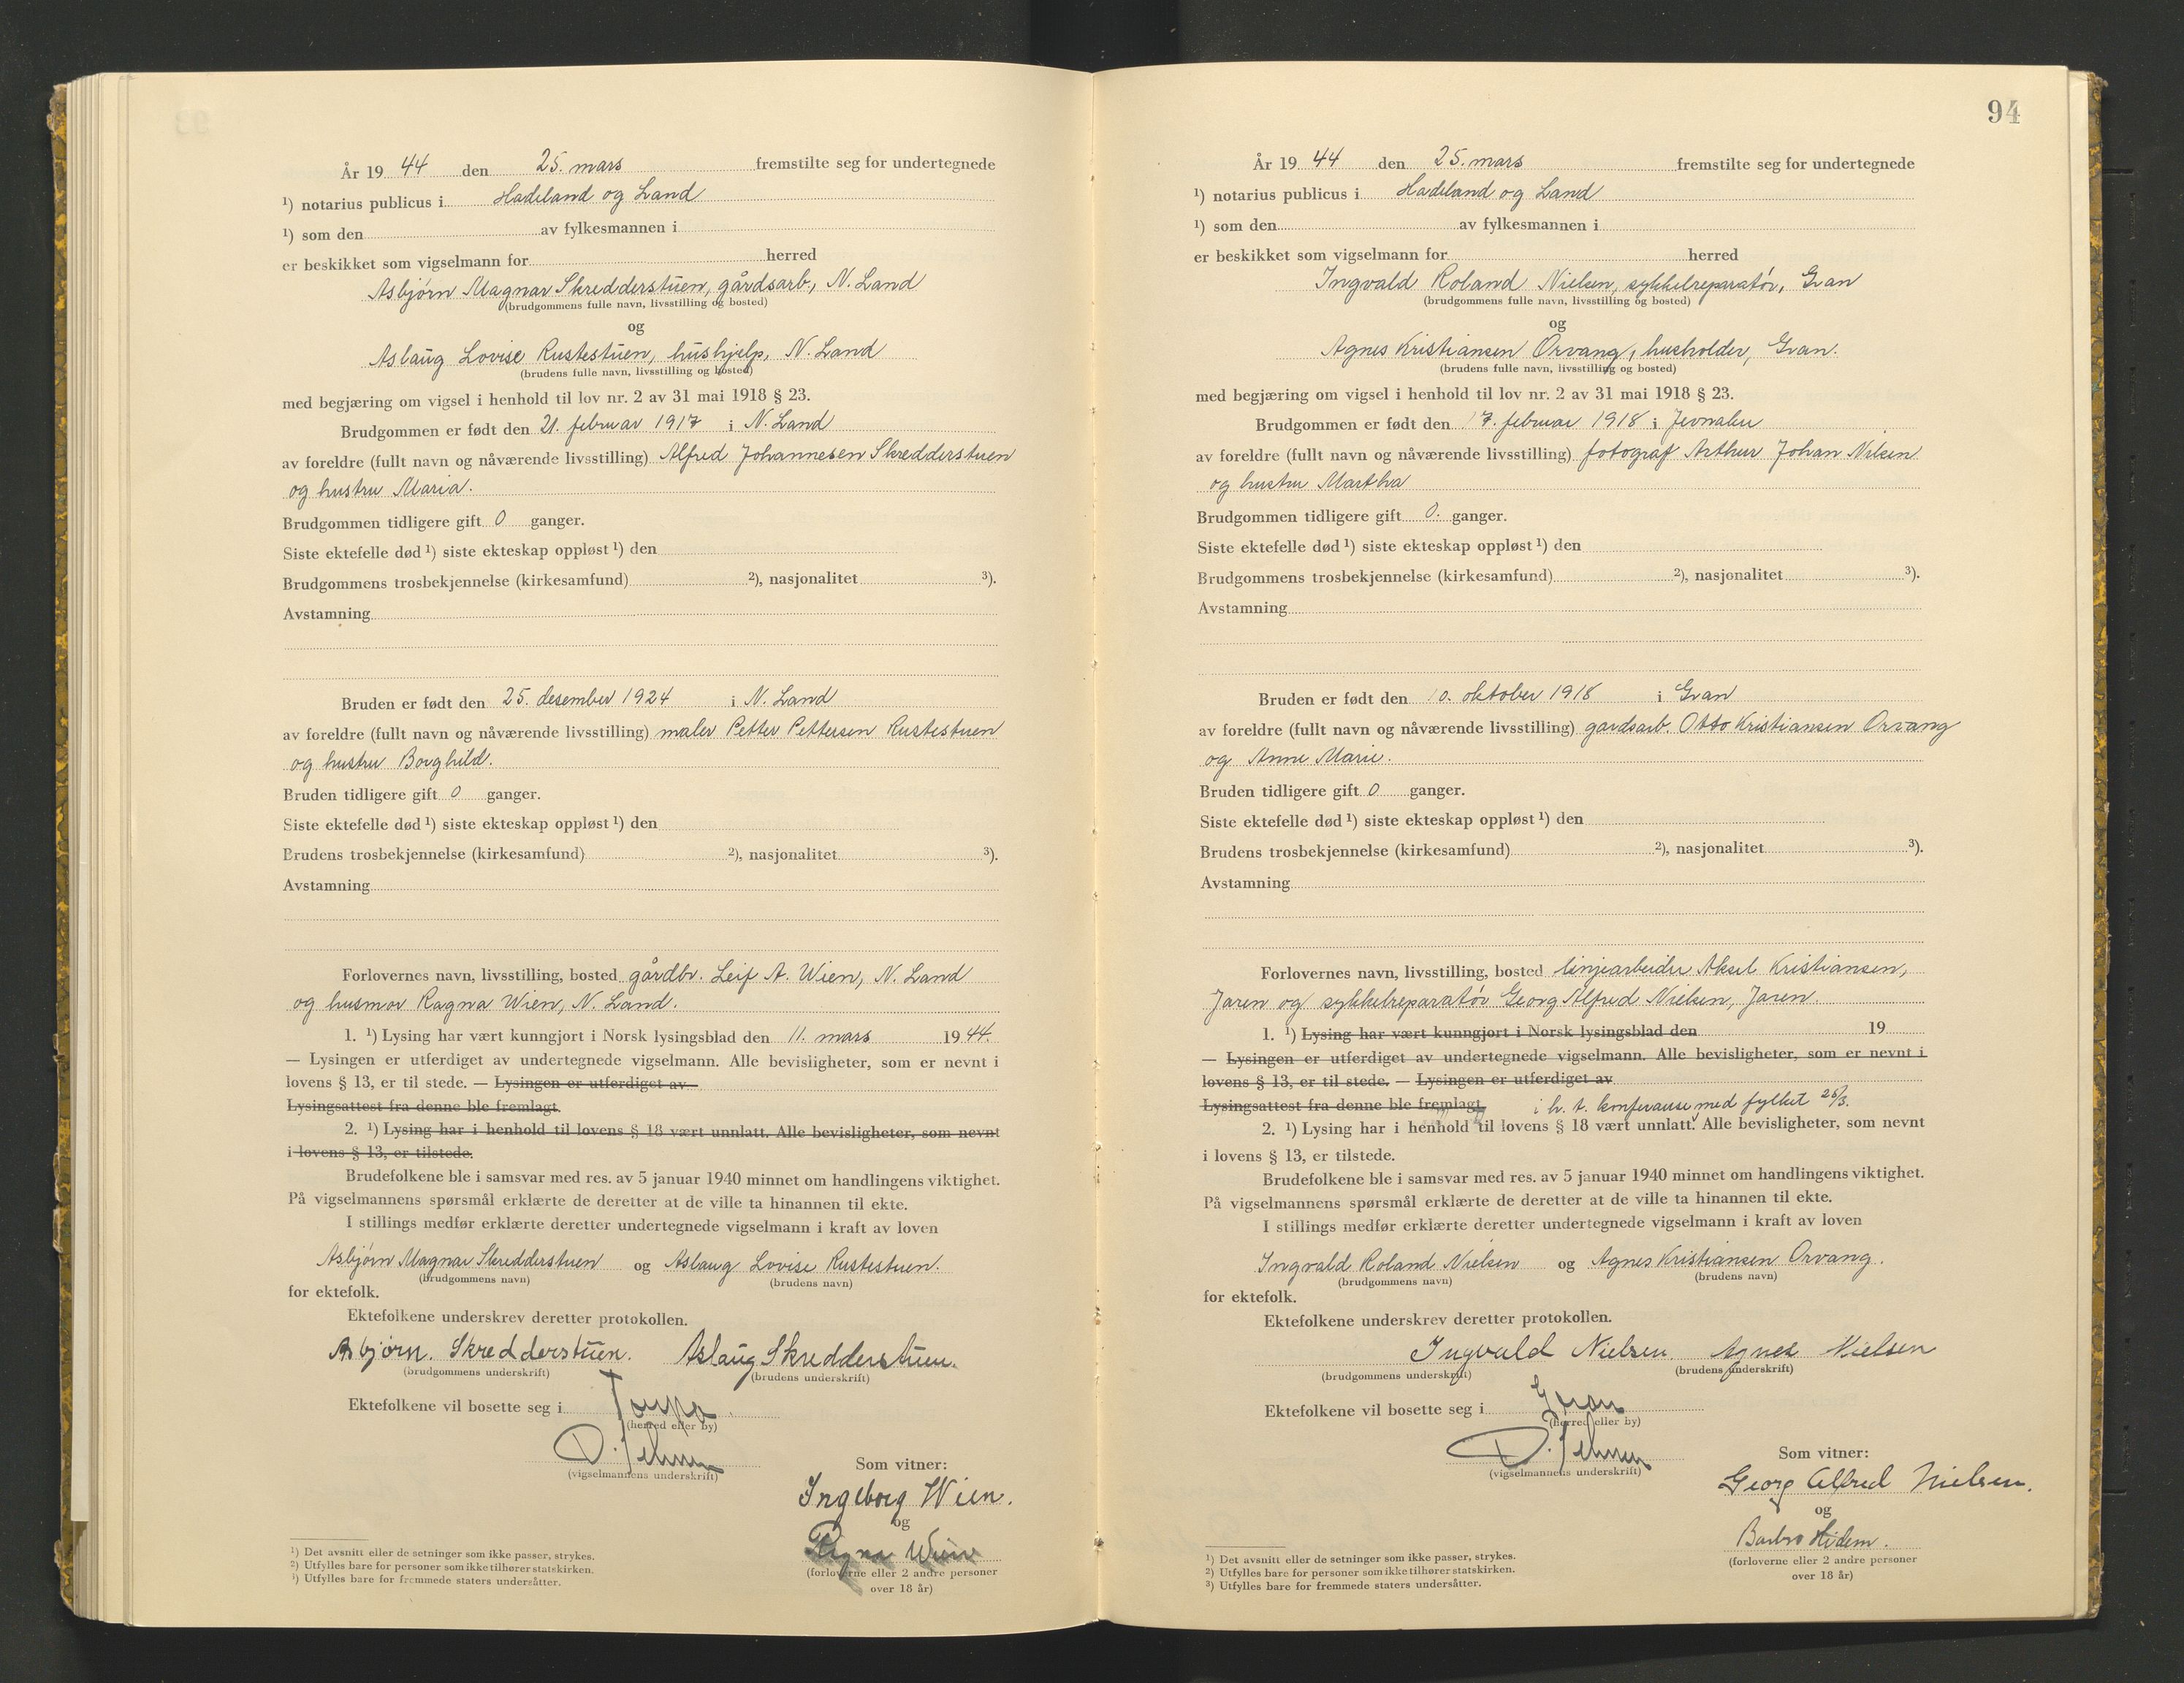 År 19 44 den 25. mars fremstilte seg for undertegnede
¹) notarius publicus i Hadeland og Land
¹) som den av fylkesmannen i
er beskikket som vigselmann for herred
Asbjørn Magnar Skredderstuen, gårdsarb., N. Land
(brudgommens fulle navn, livsstilling og bosted)
og
Aslaug Lovise Rustestuen, hushjelp, N. Land
(brudens fulle navn, livsstilling og bosted)
med begjæring om vigsel i henhold til lov nr. 2 av 31 mai 1918 § 23.
Brudgommen er født den 21. februar 1917 i N. Land
av foreldre (fullt navn og nåværende livsstilling) Alfred Johannesen Skredderstuen
og hustru Maria.
Brudgommen tidligere gift 0 ganger.
Siste ektefelle død ¹) siste ekteskap oppløst ¹) den
Brudgommens trosbekjennelse (kirkesamfund) ²), nasjonalitet ³).
Avstamning
Bruden er født den 25. desember 1924 i N. Land
av foreldre (fullt navn og nåværende livsstilling) maler Petter Pettersen Rustestuen
og hustru Borghild.
Bruden tidligere gift 0 ganger.
Siste ektefelle død ¹) siste ekteskap oppløst ¹) den
Brudens trosbekjennelse (kirkesamfund) ²), nasjonalitet ³).
Avstamning
Forlovernes navn, livsstilling, bosted gårdbr. Leif A. Wien, N. Land
og husmor Ragna Wien, N. Land.
1. ¹) Lysing har vært kunngjort i Norsk lysingsblad den 11. mars 19 44.
— Lysingen er utferdiget av undertegnede vigselmann. Alle bevisligheter, som er nevnt i
lovens § 13, er til stede. — Lysingen er utferdiget av
Lysingsattest fra denne ble fremlagt.
2. ¹) Lysing har i henhold til lovens § 18 vært unnlatt. Alle bevisligheter, som nevnt
i lovens § 13, er tilstede.
Brudefolkene ble i samsvar med res. av 5 januar 1940 minnet om handlingens viktighet.
På vigselmannens spørsmål erklærte de deretter at de ville ta hinannen til ekte.
I stillings medfør erklærte deretter undertegnede vigselmann i kraft av loven
Asbjørn Magnar Skredderstuen og Aslaug Lovise Rustestuen.
(brudgommens navn) (brudens navn)
for ektefolk.
Ektefolkene underskrev deretter protokollen.
Asbjørn. Skredderstuen. Aslaug Skredderstuen.
(brudgommens underskrift) (brudens underskrift)
Ektefolkene vil bosette seg i Torpa
(herred eller by)
(vigselmannens underskrift)
Som vitner:
Ingeborg Wien.
og
Ragna Wien
(forloverne eller 2 andre personer
over 18 år)
¹) Det avsnitt eller de setninger som ikke passer, strykes.
²) Utfylles bare for personer som ikke tilhører statskirken.
³) Utfylles bare for fremmede staters undersåtter.
94
År 19 44 den 25. mars fremstilte seg for undertegnede
¹) notarius publicus i Hadeland og Land
¹) som den av fylkesmannen i
er beskikket som vigselmann for herred
Ingvald Roland Nielsen, sykkelreparatør, Gran
(brudgommens fulle navn, livsstilling og bosted)
og
Agnes Kristiansen Orvang, husholder, Gran.
(brudens fulle navn, livsstilling og bosted)
med begjæring om vigsel i henhold til lov nr. 2 av 31 mai 1918 § 23.
Brudgommen er født den 17. februar 1918 i Jevnaker
av foreldre (fullt navn og nåværende livsstilling) fotograf Arthur Johan Nilsen
og hustru Martha
Brudgommen tidligere gift 0. ganger.
Siste ektefelle død ¹) siste ekteskap oppløst ¹) den
Brudgommens trosbekjennelse (kirkesamfund) ²), nasjonalitet ³).
Avstamning
Bruden er født den 10. oktober 1918 i Gran
av foreldre (fullt navn og nåværende livsstilling) gardsarb. Otto Kristiansen Orvang
og Anne Marie.
Bruden tidligere gift 0 ganger.
Siste ektefelle død ¹) siste ekteskap oppløst ¹) den
Brudens trosbekjennelse (kirkesamfund) ²), nasjonalitet ³).
Avstamning
Forlovernes navn, livsstilling, bosted linjearbeider Aksel Kristiansen,
Jaren og sykkelreparatør Georg Alfred Nielsen, Jaren.
1. ¹) Lysing har vært kunngjort i Norsk lysingsblad den 19
— Lysingen er utferdiget av undertegnede vigselmann. Alle bevisligheter, som er nevnt i
lovens § 13, er til stede. — Lysingen er utferdiget av
Lysingsattest fra denne ble fremlagt. i h. t. konferanse med fylket 25/3.
2. ¹) Lysing har i henhold til lovens § 18 vært unnlatt. Alle bevisligheter, som nevnt
i lovens § 13, er tilstede.
Brudefolkene ble i samsvar med res. av 5 januar 1940 minnet om handlingens viktighet.
På vigselmannens spørsmål erklærte de deretter at de ville ta hinannen til ekte.
I stillings medfør erklærte deretter undertegnede vigselmann i kraft av loven
Ingvald Roland Nielsen og Agnes Kristiansen Orvang.
(brudgommens navn) (brudens navn)
for ektefolk.
Ektefolkene underskrev deretter protokollen.
Ingvald Nielsen. Agnes Nielsen
(brudgommens underskrift) (brudens underskrift)
Ektefolkene vil bosette seg i Gran
(herred eller by)
(vigselmannens underskrift)
Som vitner:
Georg Alfred Nielsen.
og
Barbro Hidem.
(forloverne eller 2 andre personer
over 18 år)
¹) Det avsnitt eller de setninger som ikke passer, strykes.
²) Utfylles bare for personer som ikke tilhører statskirken.
³) Utfylles bare for fremmede staters undersåtter.